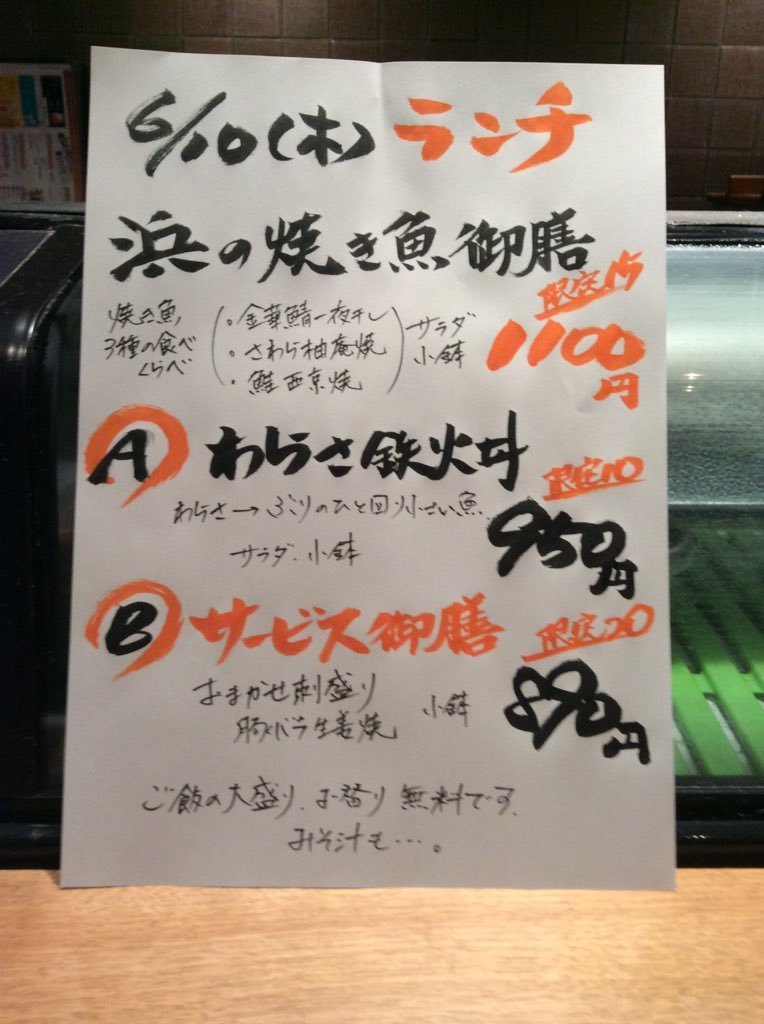 6/10(木) ランチ
浜の焼き魚御膳
限定15
1100円
焼き魚
3種の食べ
くらべ
(・金華鯖一夜干し
・さわら柚庵焼
・鮭西京焼)
サラダ
小鉢
A わらさ鉄火丼
限定10
950円
わらさ→ぶりのひと回り小さい魚
サラダ、小鉢
B サービス御膳
限定20
890円
おまかせ刺盛り
豚バラ生姜焼
小鉢
ご飯の大盛り、お替り無料です、
みそ汁も…。